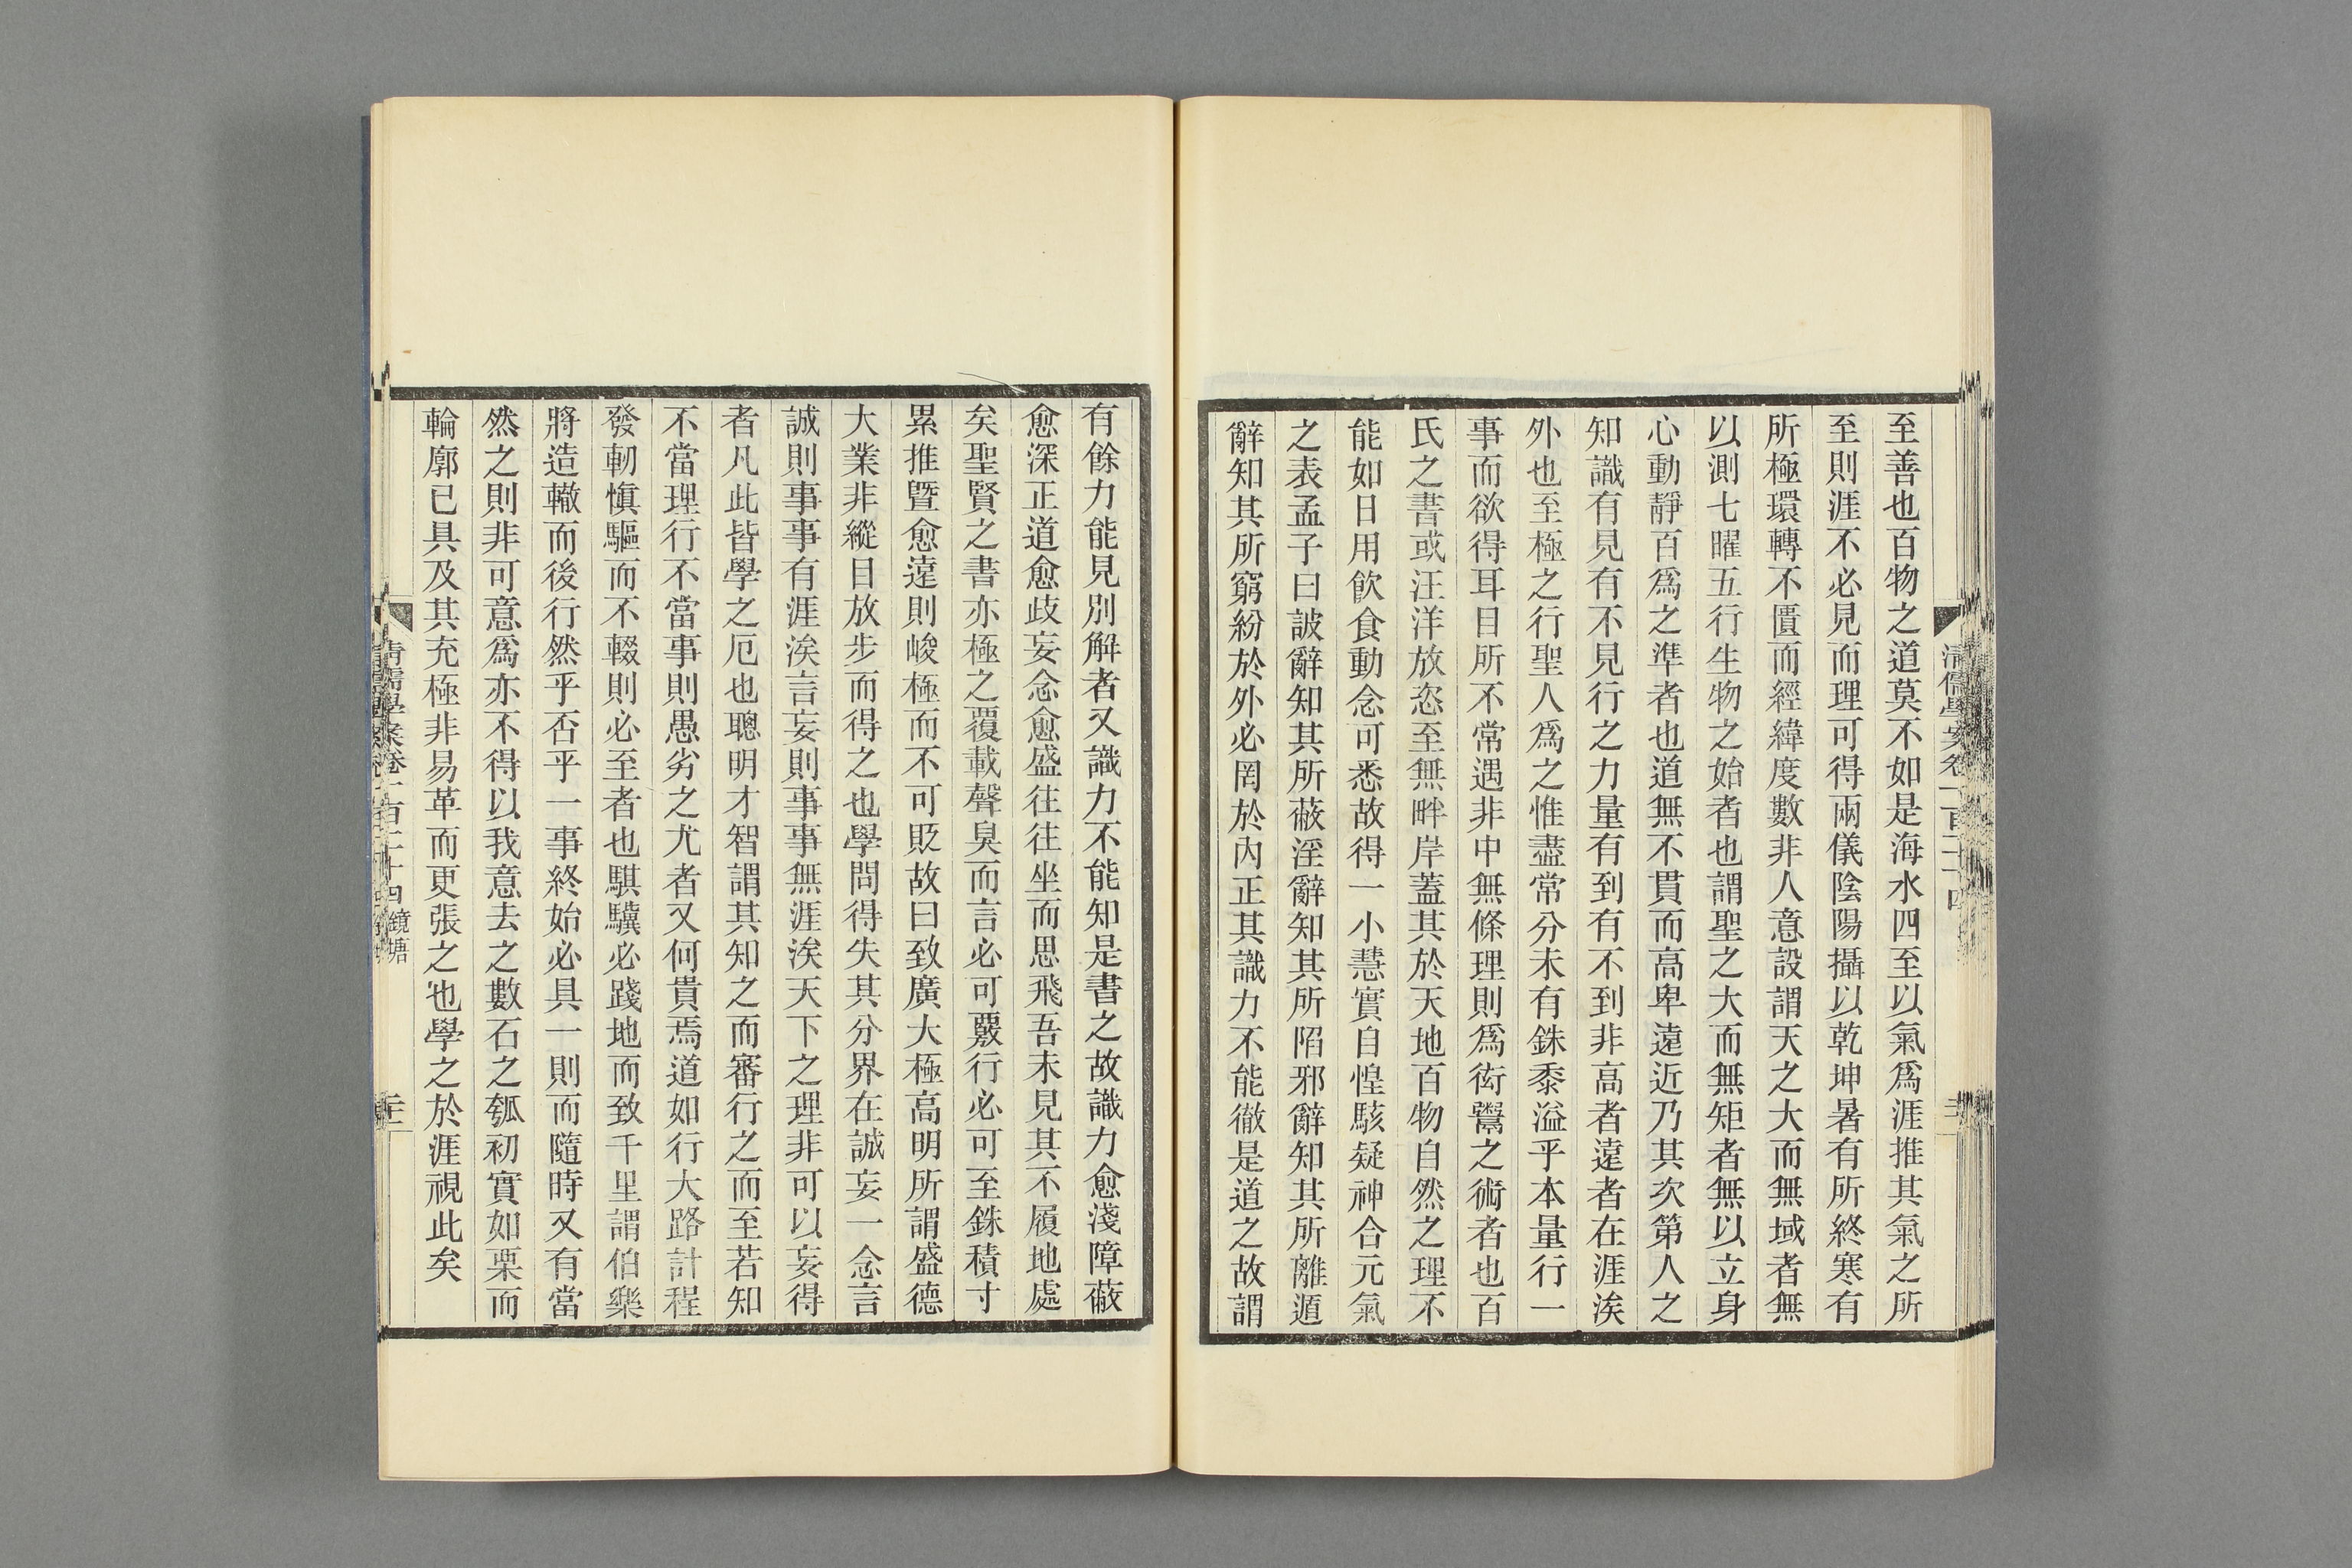 至善也百物之道莫不如是海水四至以氣爲涯推其氣之所
至則涯不必見而理可得兩儀陰陽攝以乾坤暑有所終寒有
所極環轉不匱而經緯度數非人意設謂天之大而無域者無
以測七曜五行生物之始者也謂聖之大而無矩者無以立身
心動靜百爲之準者也道無不貫而高卑遠近乃其次第人之
知識有見有不見行之力量有到有不到非高者遠者在涯涘
外也至極之行聖人爲之惟盡常分未有銖黍溢乎本量行一
事而欲得耳目所不常遇非中無條理則爲衒鬻之術者也百
氏之書或汪洋放恣至無畔岸蓋其於天地百物自然之理不
能如日用飲食動念可悉故得一小慧實自惶駭疑神合元氣
之表孟子曰詖辭知其所蔽淫辭知其所陷邪辭知其所離遁
辭知其所窮紛於外必罔於內正其識力不能徹是道之故謂
有餘力能見別解者又識力不能知是書之故識力愈淺障蔽
愈深正道愈歧妄念愈盛往往坐而思飛吾未見其不履地處
矣聖賢之書亦極之覆載聲臭而言必可覈行必可至銖積寸
累推曁愈遠則峻極而不可貶故曰致廣大極高明所謂盛德
大業非縱目放步而得之也學問得失其分界在誠妄一念言
誠則事事有涯涘言妄則事事無涯涘天下之理非可以妄得
者凡此皆學之厄也聰明才智謂其知之而審行之而至若知
不當理行不當事則愚劣之尤者又何貴焉道如行大路計程
發軔愼驅而不輟則必至者也騏驥必踐地而致千里謂伯樂
將造轍而後行然乎否乎一事終始必具一則而隨時又有當
然之則非可意爲亦不得以我意去之數石之瓠初實如栗而
輪廓已具及其充極非易革而更張之也學之於涯視此矣
清儒學案卷一百二十四 鏡塘